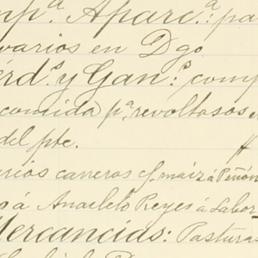 mpª. Aparcª: pa
varios en Dgo.
érd.ª y Gan.ª: comp
comida pª. revoltosos
del pte.
rios carreros c/. maiz á Piñón
o á Anacleto Reyes á Labor
Mercancias: Pasturas